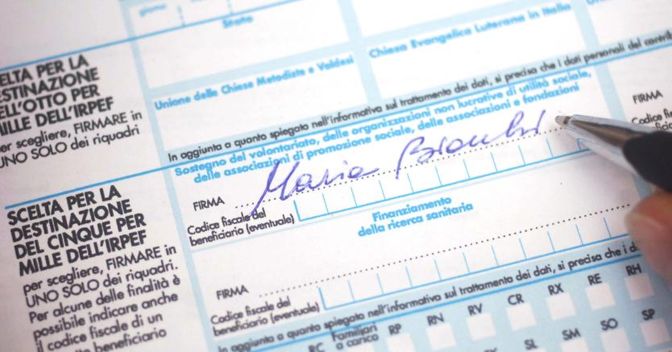 giorno
mese
Unione delle Chiese Metodiste e Valdesi
Chiesa Evangelica Luterana in Italia
SCELTA PER LA
DESTINAZIONE
DELL'OTTO PER
MILLE DELL'IRPEF
per scegliere, FIRMARE in
UNO SOLO dei riquadri
In aggiunta a quanto spiegato nell'informativa sul trattamento dei dati, si precisa che i dati personali del contrib
SCELTA PER LA
DESTINAZIONE
DEL CINQUE PER
MILLE DELL'IRPEF
per scegliere, FIRMARE in
UNO SOLO dei riquadri.
Per alcune delle finalità è
possibile indicare anche
il codice fiscale di un
Sostegno del volontariato, delle organizzazioni non lucrative di utilità sociale,
delle associazioni di promozione sociale, delle associazioni e fondazioni
FIRMA Maria Bianchi
Codice fiscale del
beneficiario (eventuale)
FIRMA
Codice fiscale
beneficiario
Finanziamento
della ricerca sanitaria
FIRMA
Codice fiscale del
beneficiario (eventuale)
In aggiunta a quanto spiegato nell'informativa sul trattamento dei dati, si precisa che i d
RC
Familiari
a carico
RP
RN
RV
CR
RX
RE
RH
CM
SO